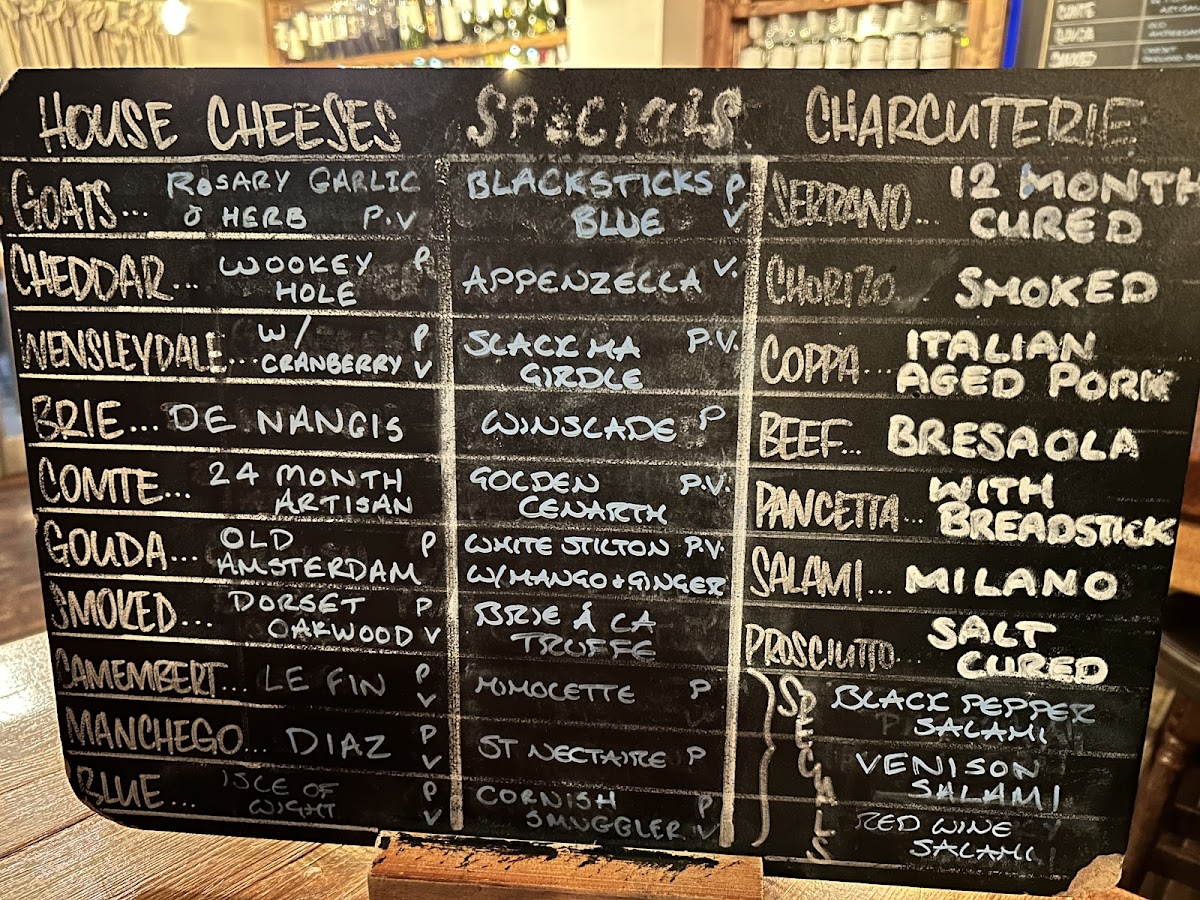 HOUSE CHEESES
GOATS... ROSARY GARLIC
& HERB P.V
CHEDDAR... WOOKEY P
HOLE
WENSLEYDALE... W/ P
CRANBERRY V
BRIE... DE NANGIS
COMTE... 24 MONTH
ARTISAN
GOUDA... OLD P
AMSTERDAM
SMOKED... DORSET P
OAKWOOD V
CAMEMBERT... LE FIN P
V
MANCHEGO... DIAZ P
V
BLUE... ISLE OF P
WIGHT V
SPECIALS
BLACKSTICKS P
BLUE V
APPENZELLA V.
SLACK MA P.V.
GIRDLE
WINSLADE P
GOLDEN P.V.
CENARTH
WHITE STILTON P.V.
W/MANGO + GINGER
BRIE Á LA
TRUFFE
MIMOLETTE P
ST NECTAIRE P
CORNISH P
SMUGGLER V
CHARCUTERIE
SERRANO... 12 MONTH
CURED
CHORIZO... SMOKED
COPPA... ITALIAN
AGED PORK
BEEF... BRESAOLA
PANCETTA... WITH
BREADSTICK
SALAMI... MILANO
PROSCIUTTO... SALT
CURED
SPECIALS
BLACK PEPPER
SALAMI
VENISON
SALAMI
RED WINE
SALAMI